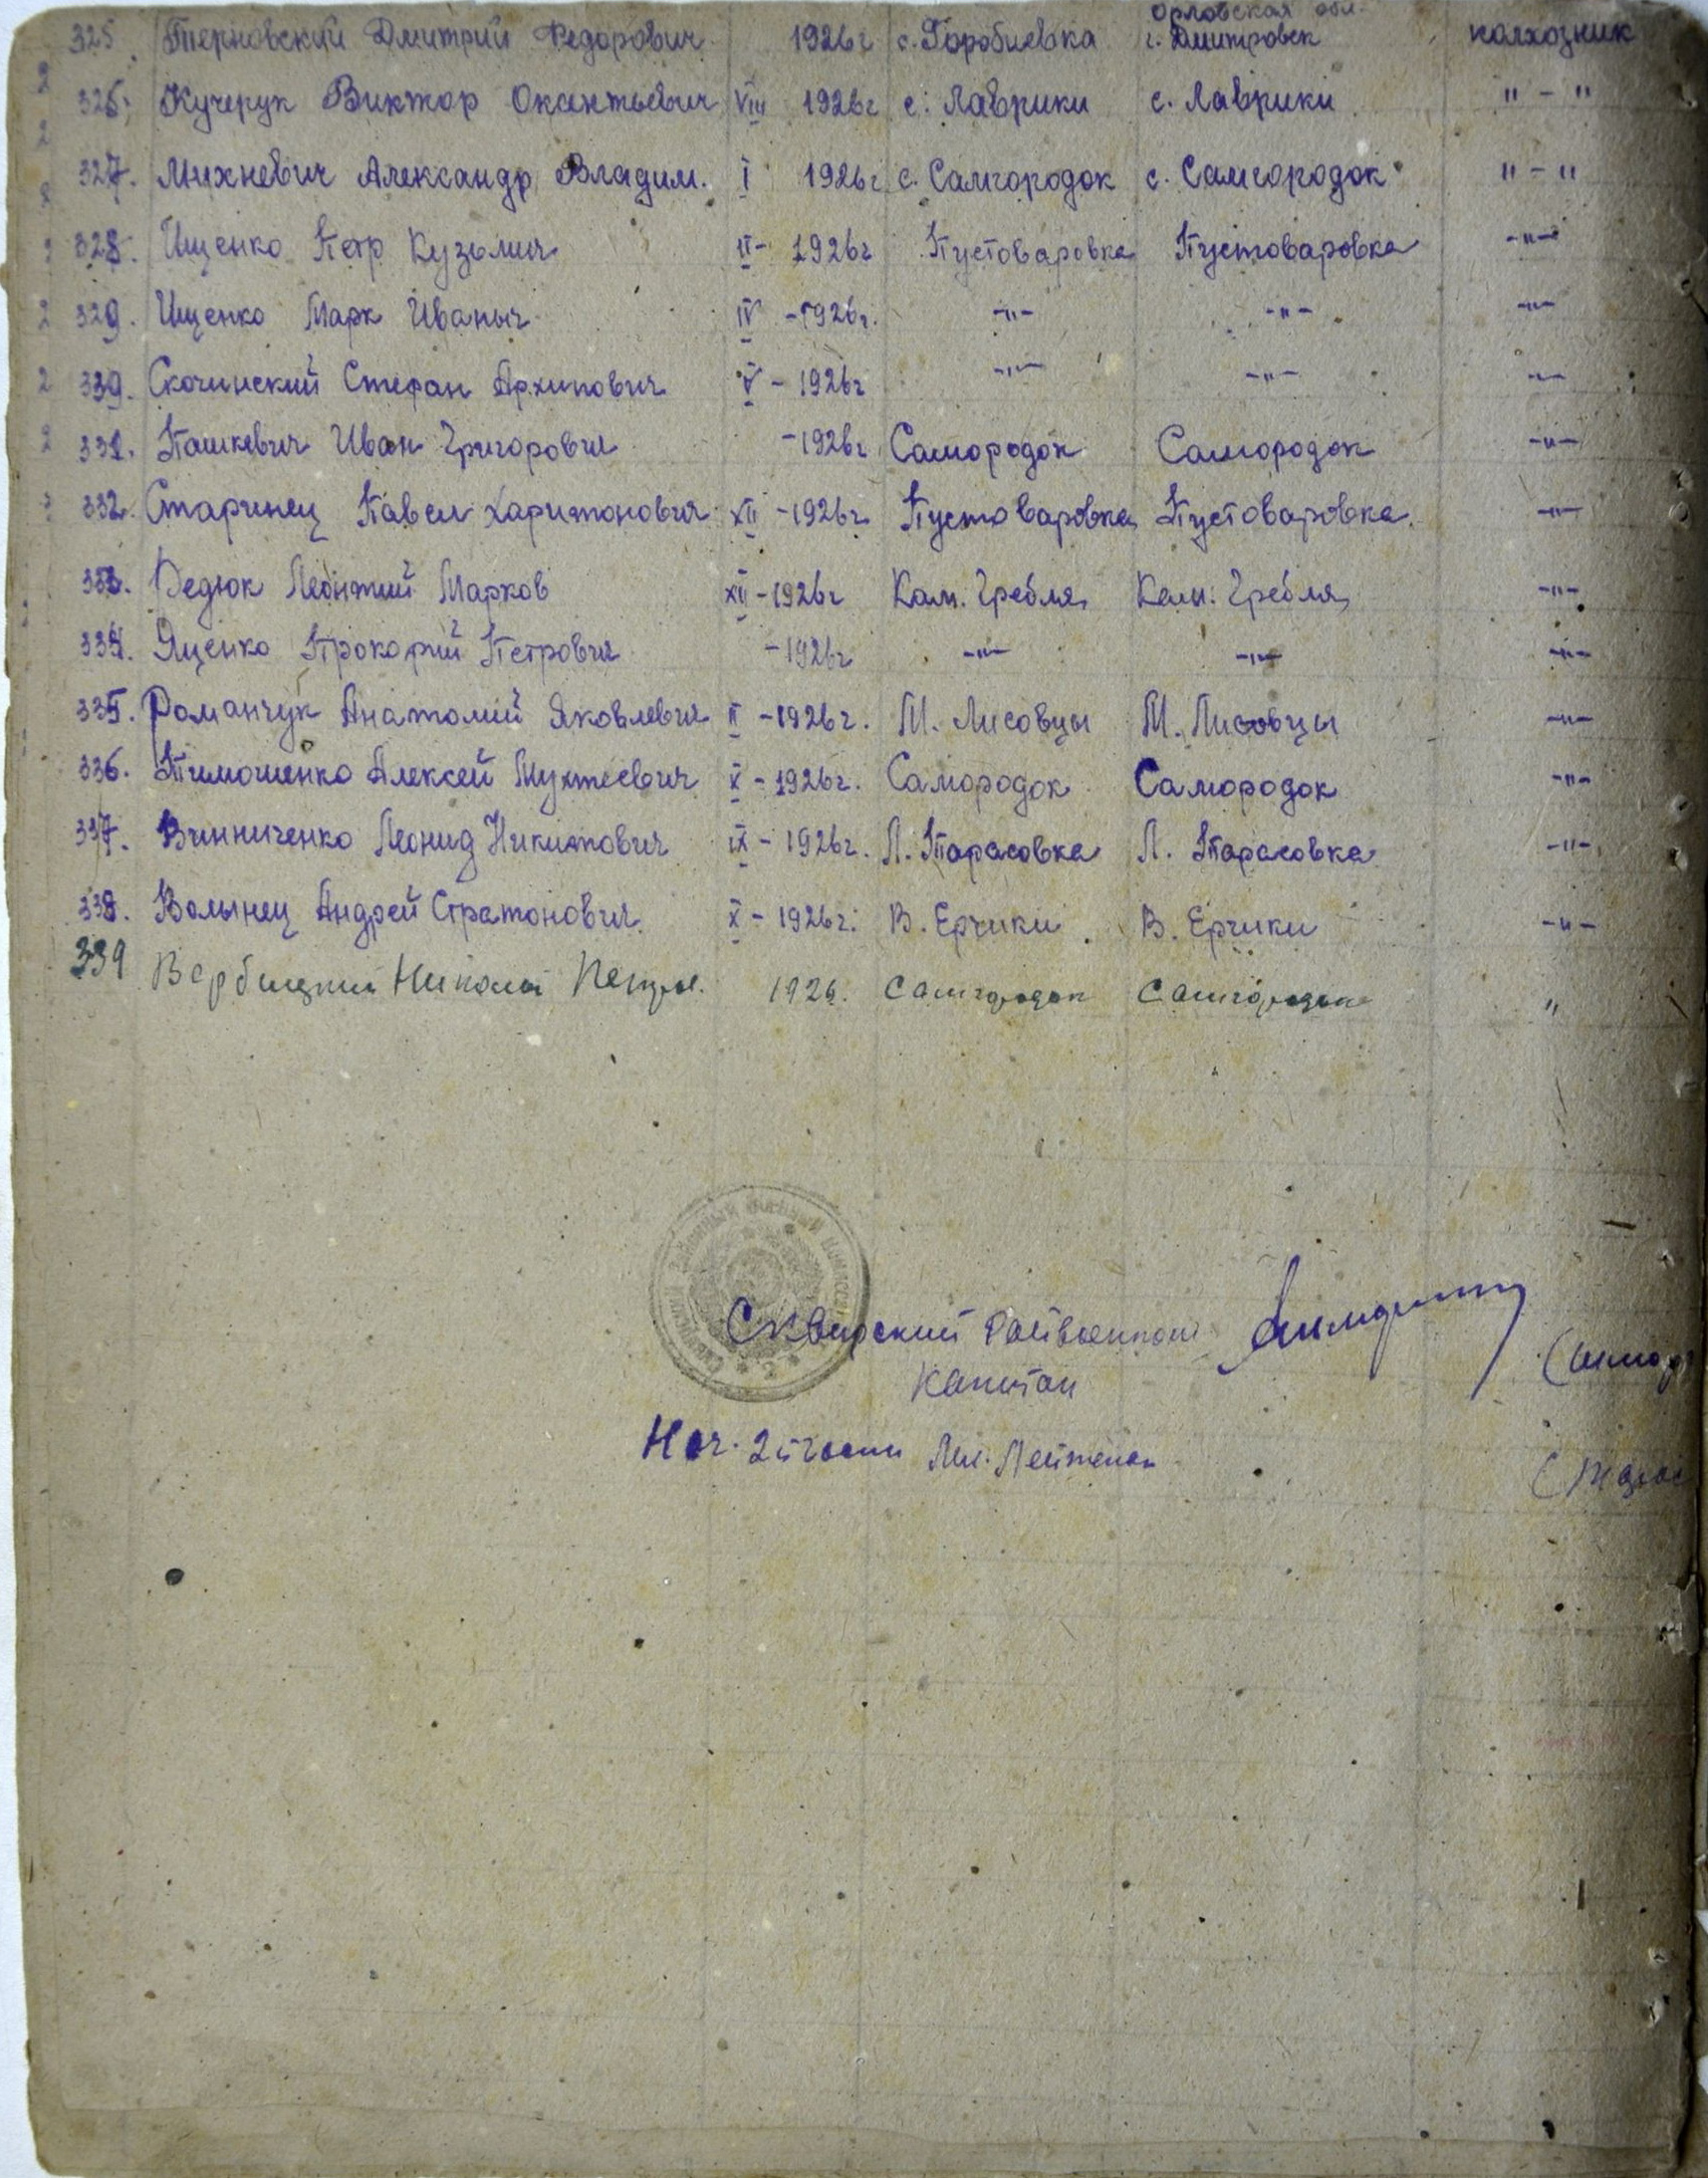 Орловская обл.
325. Терновский Дмитрий Федорович 1926г с. Горобиевка г. Дмитровск колхозник
326. Кучерук Виктор Оксентьевич VIII 1926г с. Лаврики с. Лаврики " - "
327. Михневич Александр Владим. I 1926г с. Самгородок с. Самгородок " - "
328. Ищенко Петр Кузьмич II - 1926г Пустоваровка Пустоваровка -"-
329. Ищенко Марк Иваныч IV - 1926г. -"- -"- -"-
330. Скочинский Стефан Архипович V - 1926г -"- -"- -"-
331. Пашкевич Иван Григорович - 1926г Самородок Самородок -"-
332. Старинец Павел Харитонович XII - 1926г Пустоваровка Пустоваровка -"-
333. Ведюк Леонтий Марков XII - 1926г Кам. Гребля Кам. Гребля -"-
334. Яценко Прокофий Петрович - 1926г -"- -"- -"-
335. Романчук Анатолий Яковлевич II - 1926г. М. Лисовцы М. Лисовцы -"-
336. Тимошенко Алексей Мухтеевич X - 1926г. Самородок Самородок -"-
337. Винниченко Леонид Никитович IX - 1926г. Л. Тарасовка Л. Тарасовка -"-
338. Волынец Андрей Стратонович X - 1926г. В. Ерчики В. Ерчики -"-
339 Вербицкий Николай Петров. 1926. Самгородок Самгородок "
Сквирский Райвоенком
Капитан
Нач. 2й части Мл. Лейтенан